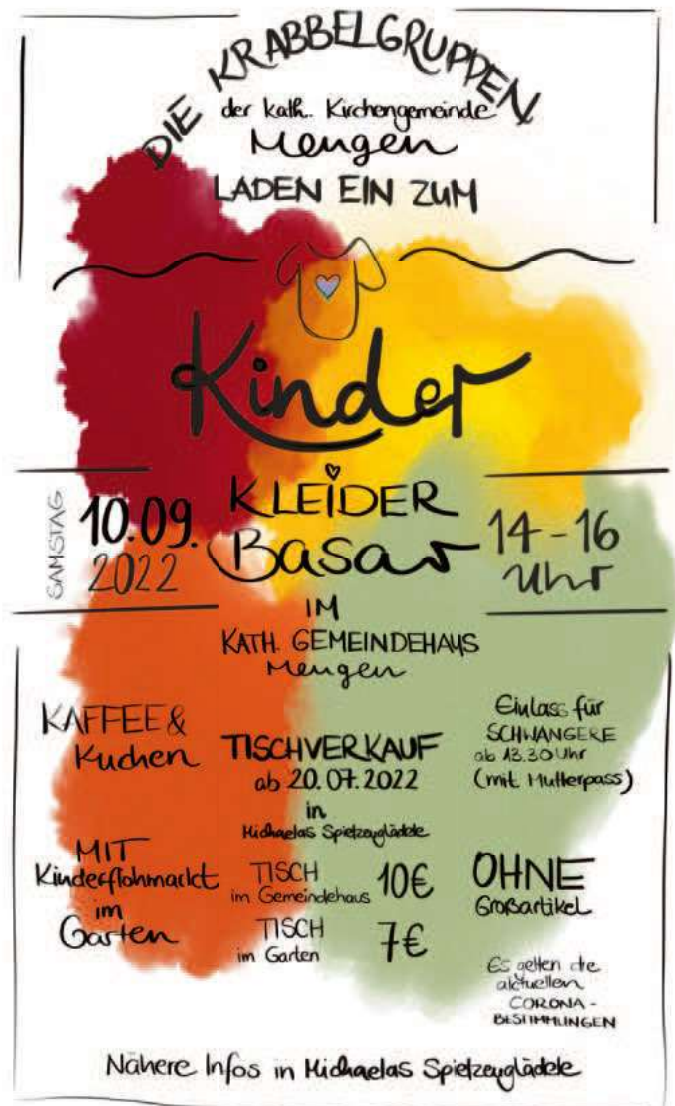 DIE KRABBELGRUPPEN
der kath. Kirchengemeinde
Mengen
LADEN EIN ZUM
Kinder
SAMSTAG
10.09.
2022
KLEIDER
Basar
14-16
Uhr
IM
KATH. GEMEINDEHAUS
Mengen
KAFFEE &
Kuchen
TISCHVERKAUF
ab 20.07.2022
in
Michaelas Spielzeuglädele
Einlass für
SCHWANGERE
ab 13.30 Uhr
(mit Mutterpass)
MIT
Kinderflohmarkt
im
Garten
TISCH
im Gemeindehaus 10€
TISCH
im Garten 7€
OHNE
Großartikel
Es gelten die
aktuellen
CORONA-
BESTIMMUNGEN
Nähere Infos in Michaelas Spielzeuglädele